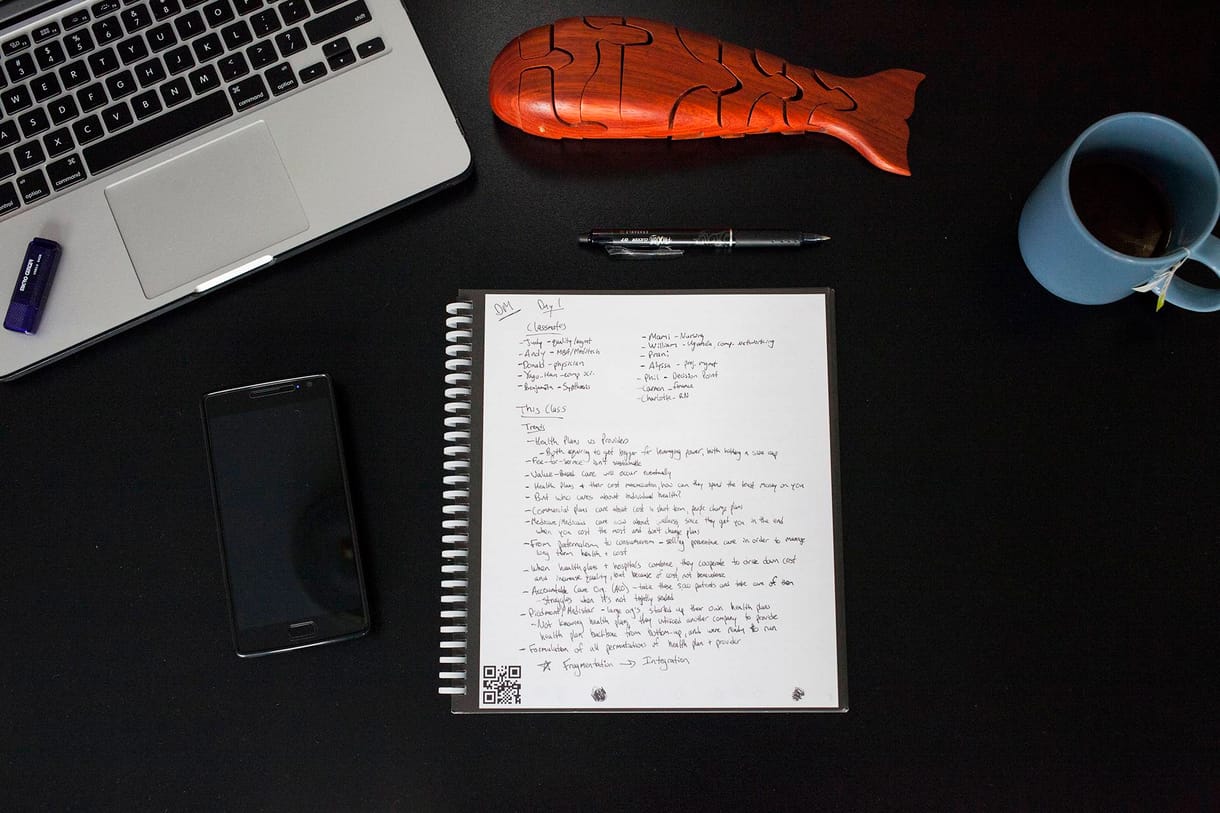 DM Day 1
Classmates
- Judy - quality/mgmt
- Andy - MBA/Medtech
- Donald - physician
- comp sci.
- Benjamin - Synthesis
- Mami - Nursing
- William - Uganda, comp. networking
- Prani
- Alyssa - proj. mgmt
- Phil - Decision Point
- Carmen - finance
- Charlotte - RN
This Class
Trends
- Health Plans vs Providers
- Both aspiring to get bigger for leveraging power, both holding a
- Fee-for-service isn't sustainable
- Value-Based care will occur eventually
- Health Plans + their cost minimization, how can they spend the least money on you
- But who cares about individual health?
- Commercial plans care about cost in short term, people change plans
- Medicare/Medicaid care now about wellness since they get you in the end
when you cost the most and don't change plans
- From paternalism to consumerism - selling preventive care in order to manage
long term health + cost
- When health plans + hospitals combine, they cooperate to drive down cost
and increase quality, but because of cost, not benevolence
- Accountable Care Org. (ACO) - take these 5,000 patients and take care of them
- struggles when it's not totally sealed
- Piedmont/Medstar - large org's started up their own health plans
- Not knowing health plans, they utilized another company to provide
health plan backbone from bottom-up, and were ready to run
- Formulation of all permutations of health plan + provider
☆ Fragmentation → Integration
shift
command
option
command
option
control
FRIXION CLICKER 07